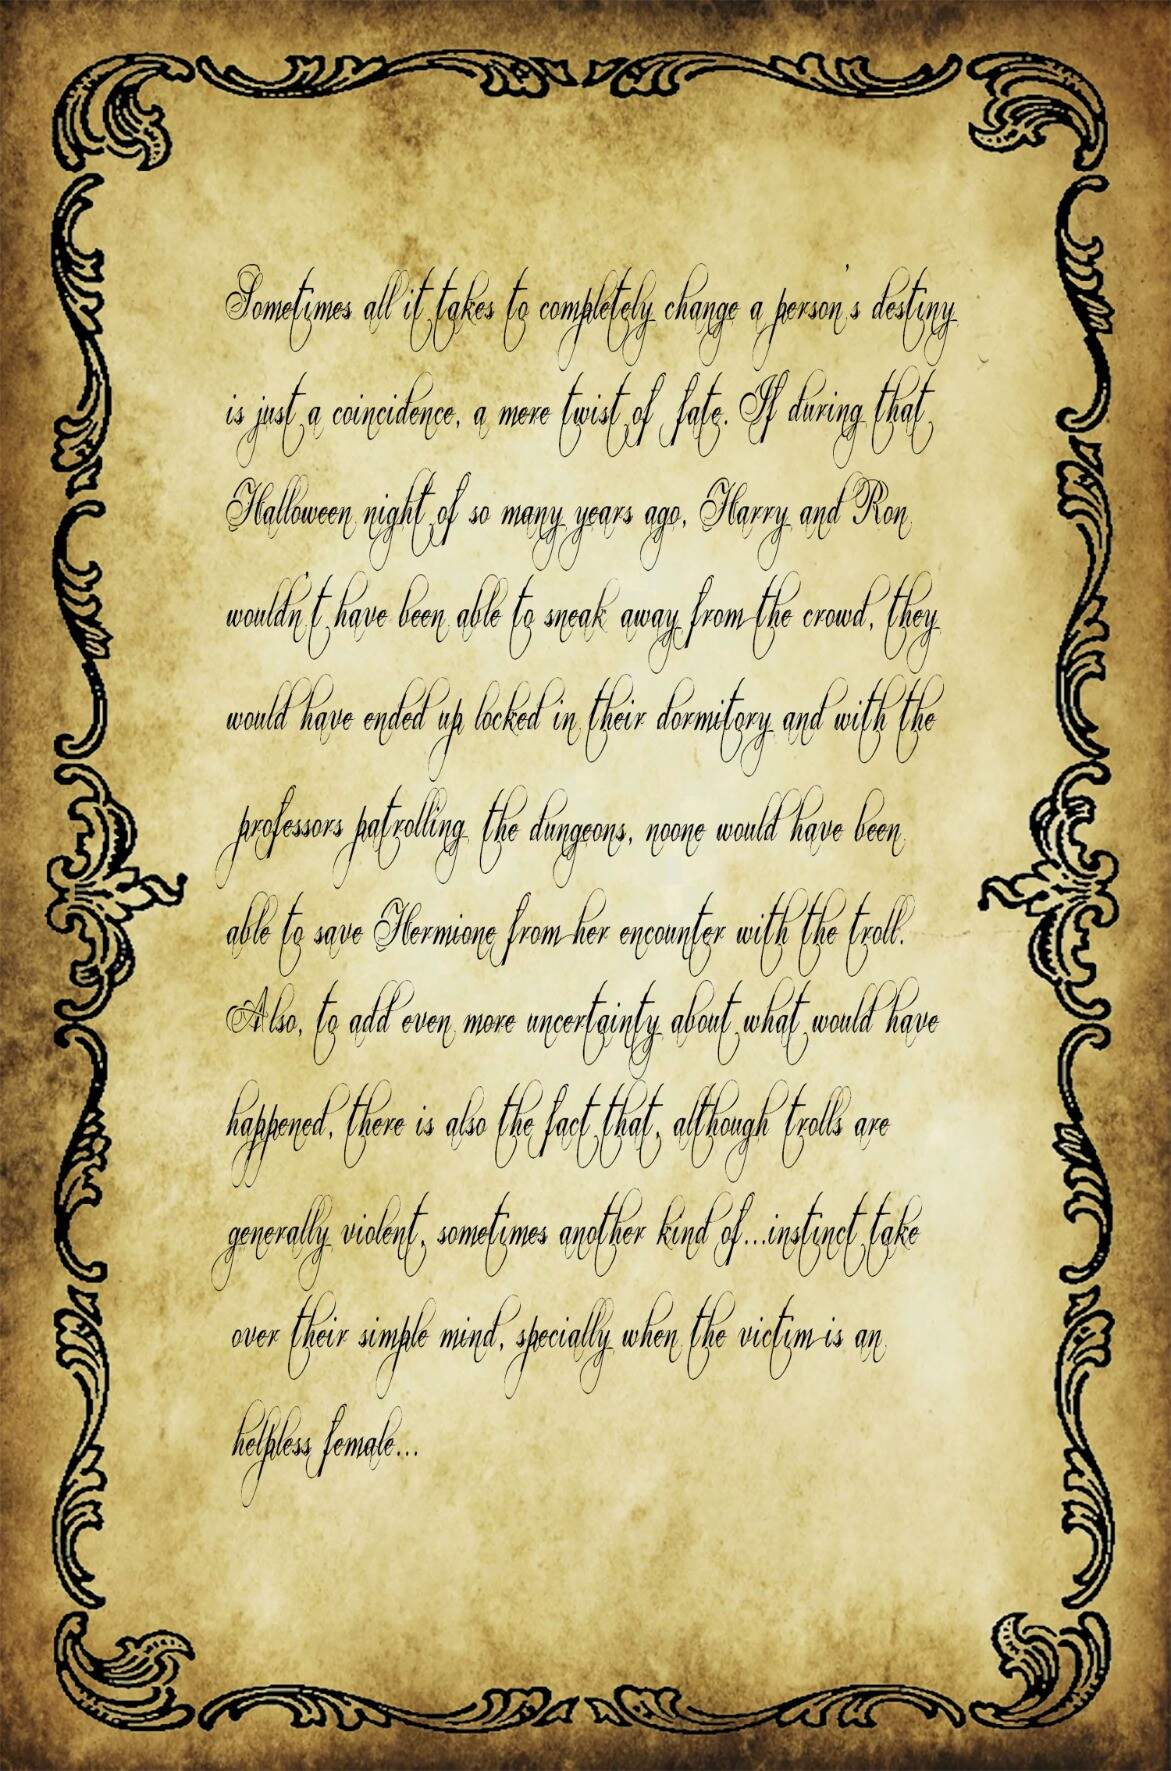 Sometimes all it takes to completely change a person's destiny
is just a coincidence, a mere twist of fate. If during that
Halloween night of so many years ago, Harry and Ron
wouldn't have been able to sneak away from the crowd, they
would have ended up locked in their dormitory and with the
professors patrolling the dungeons, noone would have been
able to save Hermione from her encounter with the troll.
Also, to add even more uncertainty about what would have
happened, there is also the fact that, although trolls are
generally violent, sometimes another kind of...instinct take
over their simple mind, specially when the victim is an
helpless female...